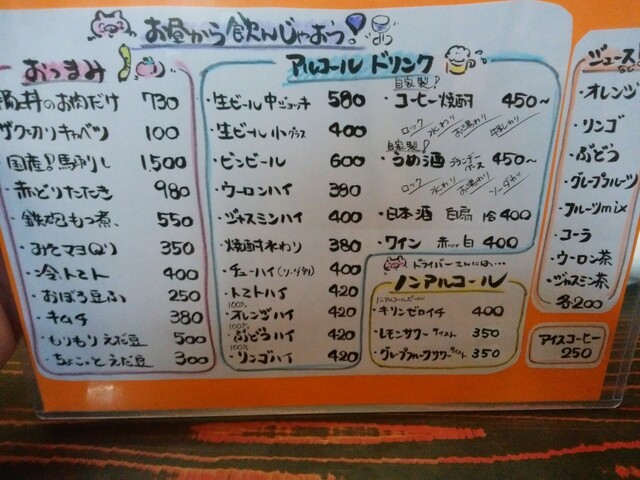 お昼から飲んじゃおう!
おつまみ
豚丼のお肉だけ 730
ザクっ切りキャベツ 100
国産!馬刺し 1,500
赤どりたたき 980
鉄砲もつ煮 550
みそマヨQり 350
冷トマト 400
おぼろ豆ふ 250
キムチ 380
もりもりえだ豆 500
ちょこっとえだ豆 300
アルコールドリンク
生ビール中ジョッキ 580
生ビール小グラス 400
ビンビール 600
ウーロンハイ 380
ジャスミンハイ 400
焼酎水わり 380
チューハイ(ソーダ割) 400
トマトハイ 420
100%
オレンジハイ 420
100%
ぶどうハイ 420
100%
リンゴハイ 420
自家製!
コーヒー焼酎 450~
ロック 水わり お湯わり 牛乳わり
自家製!
うめ酒 ブランデーベース 450~
ロック 水わり お湯わり ソーダわり
日本酒 白扇 冷 400
ワイン 赤or白 400
ドライバーさんには…
ノンアルコール
ノンアルコールビール
キリンゼロイチ 400
レモンサワーテイスト 350
グレープフルーツサワーテイスト 350
ジュース
オレンジ
リンゴ
ぶどう
グレープフルーツ
フルーツmix
コーラ
ウーロン茶
ジャスミン茶
各200
アイスコーヒー
250